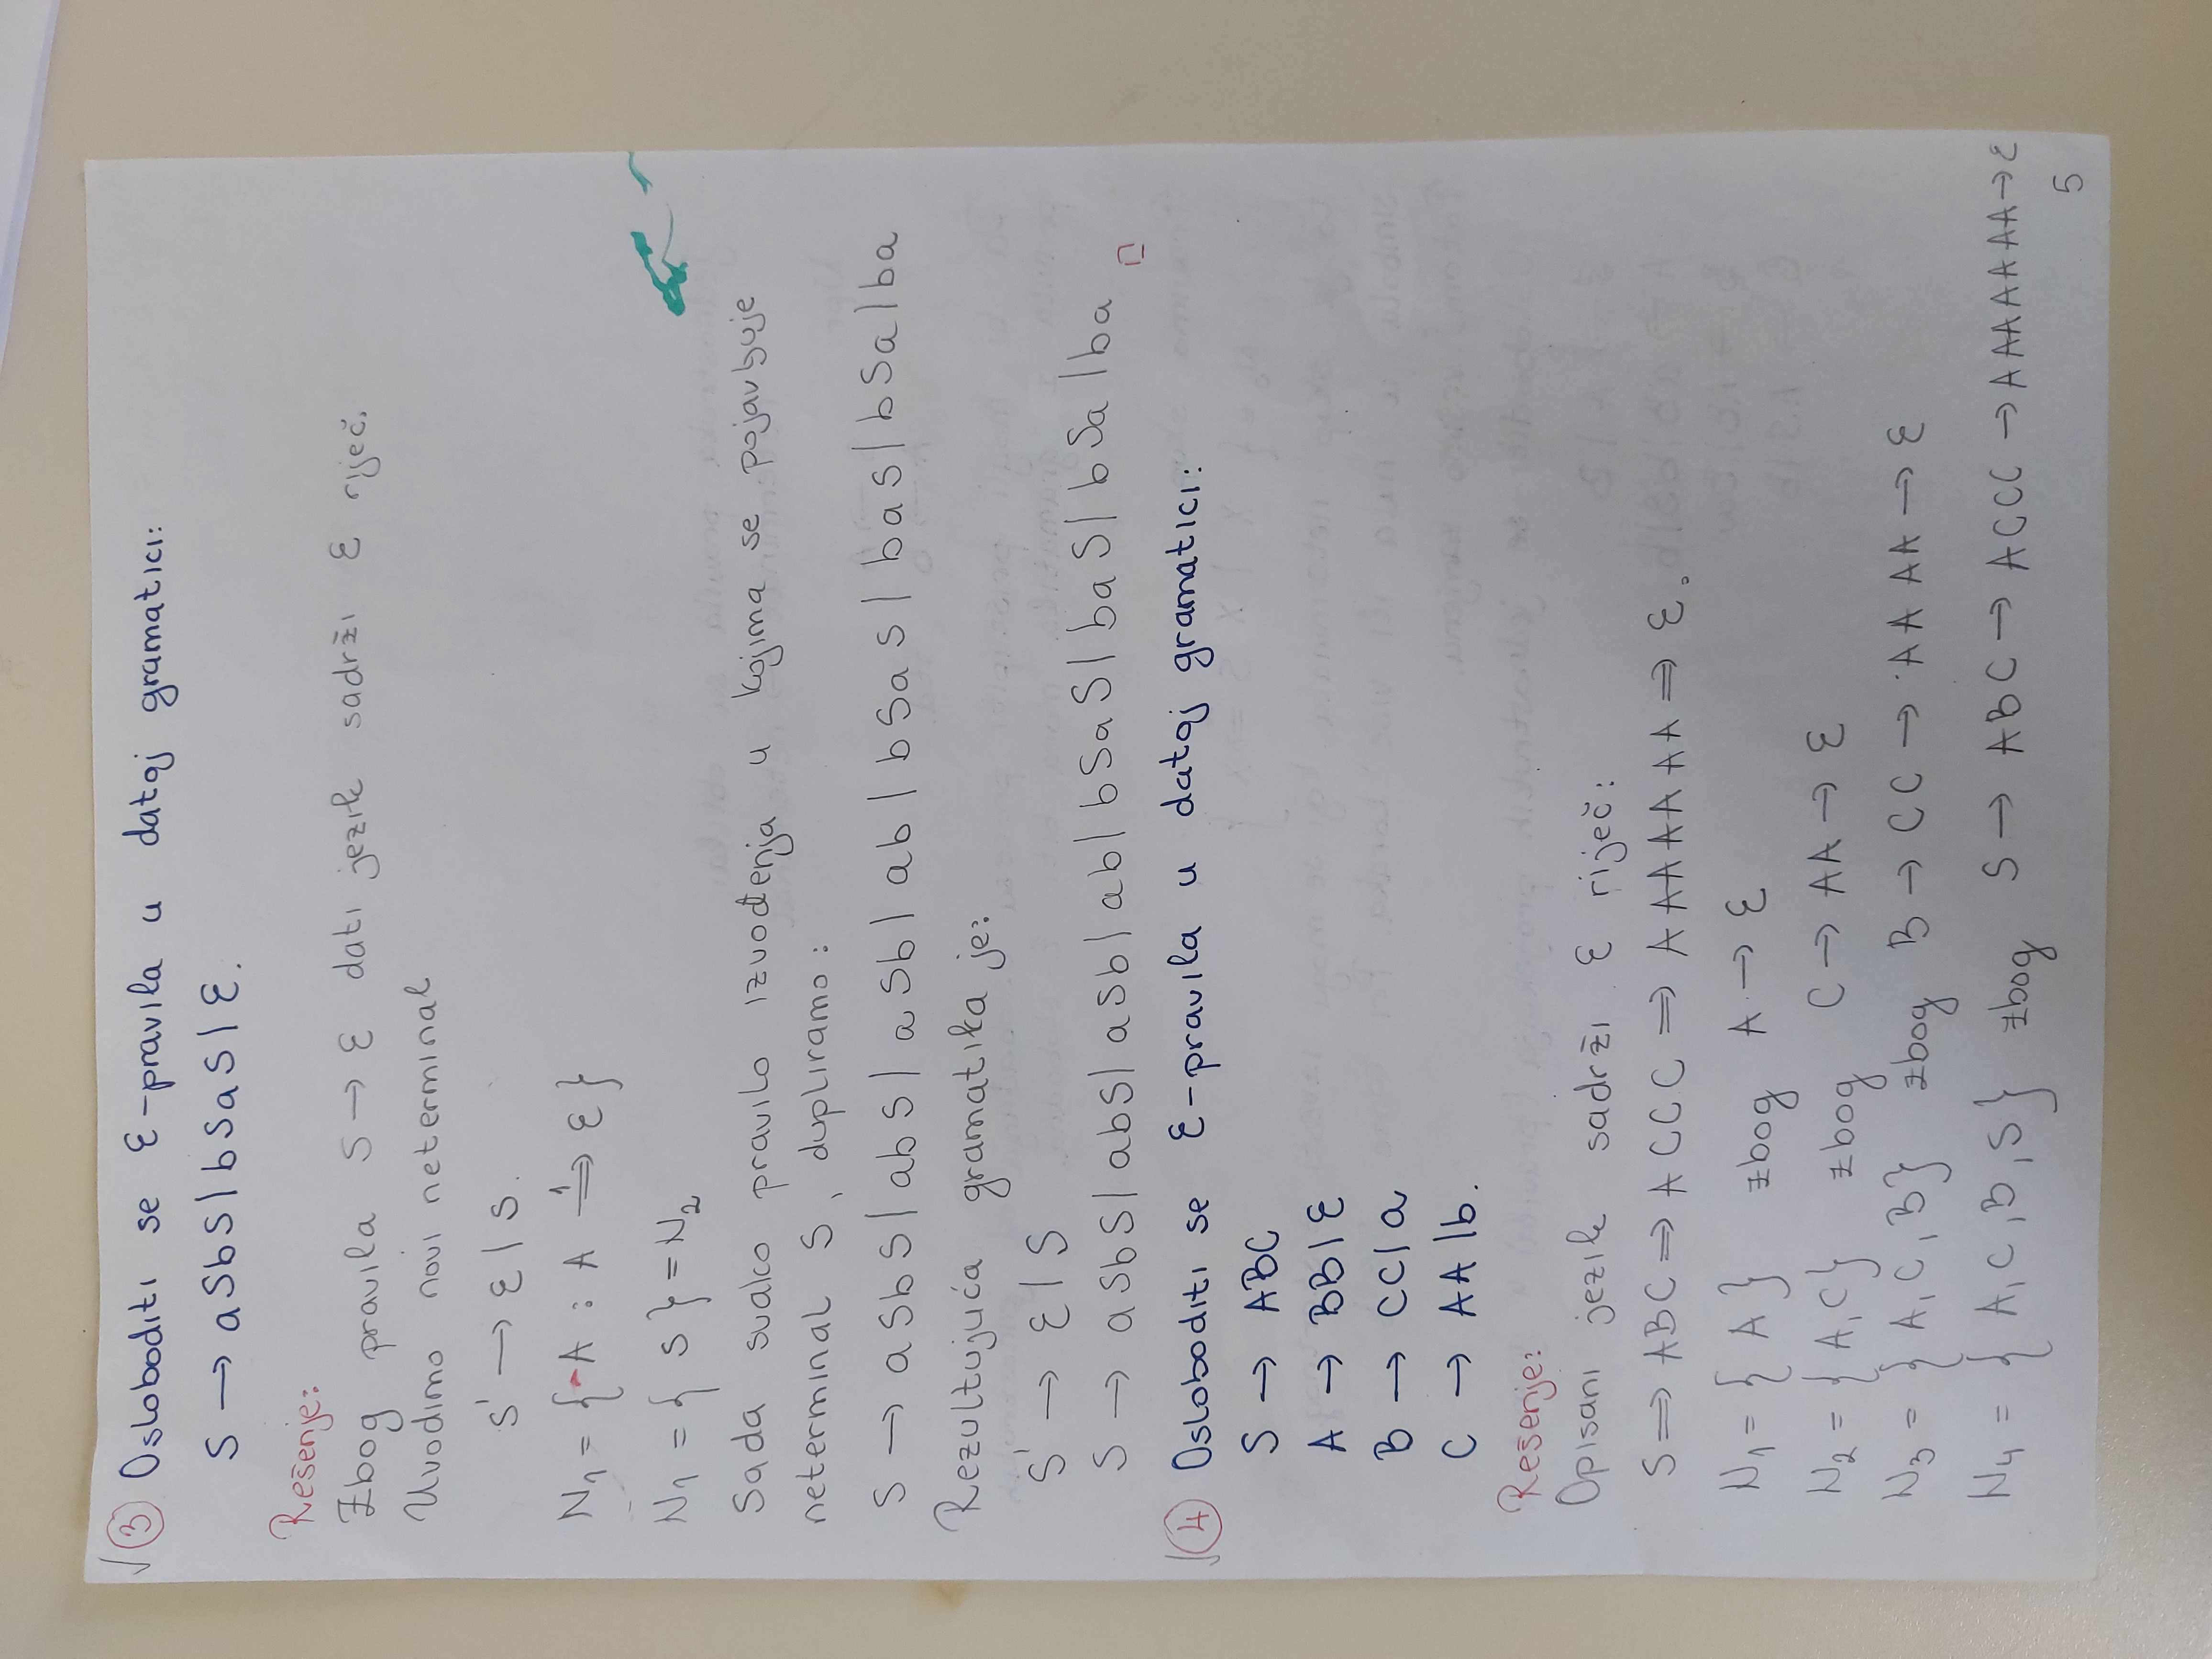 ③ Osloboditi se ε-pravila u datoj gramatici:
S → aSbS | bSaS | ε.
Rešenje:
Zbog pravila S → ε dati jezik sadrži ε riječ.
Uvodimo novi neterminal
S' → ε | S.
N₁ = { A : A ⇒¹ ε }
N₁ = { S } = N₂
Sada svako pravilo izvođenja u kojima se pojavljuje
neterminal S, dupliramo:
S → aSbS | abS | aSb | ab | bSaS | baS | bSa | ba
Rezultujuća gramatika je:
S' → ε | S
S → aSbS | abS | aSb | ab | bSaS | baS | bSa | ba
④ Osloboditi se ε-pravila u datoj gramatici:
S → ABC
A → BB | ε
B → CC | a
C → AA | b.
Rešenje:
Opisani jezik sadrži ε riječ:
S ⇒ ABC ⇒ ACCC ⇒ AAAAAAA ⇒ ε.
N₁ = { A } zbog A → ε
N₂ = { A, C } zbog C → AA → ε
N₃ = { A, C, B } zbog B → CC → AAAA → ε
N₄ = { A, C, B, S } zbog S → ABC → ACCC → AAAAAAA → ε
5